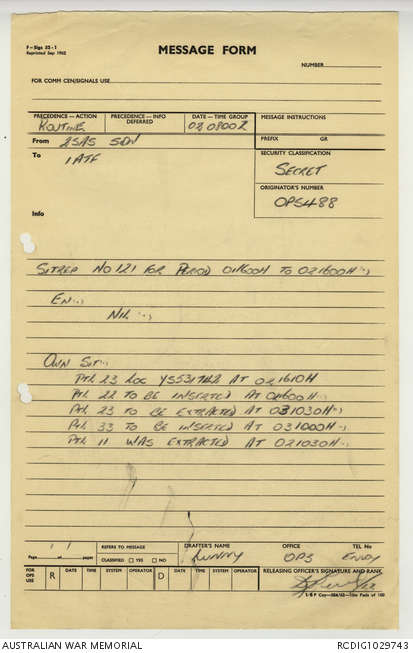 F—Sigs 52-1
Reprinted Sep 1962
MESSAGE FORM
NUMBER
FOR COMM CEN/SIGNALS USE
PRECEDENCE—ACTION
ROUTINE
PRECEDENCE—INFO
DEFERRED
DATE—TIME GROUP
020800Z
MESSAGE INSTRUCTIONS
From 2SAS SQN
PREFIX GR
To 1ATF
SECURITY CLASSIFICATION
SECRET
ORIGINATOR'S NUMBER
OPS488
Info
SITREP NO 121 FOR PERIOD 011600H TO 021600H
EN
NIL
OWN SIT
PTL 23 LOC AT 021610H
PTL 22 TO BE INSERTED AT
PTL 23 TO BE EXTRACTED AT 031030H
PTL 33 TO BE INSERTED AT 031000H
PTL 11 WAS EXTRACTED AT 021030H
Page 1 of 1 pages
REFERS TO MESSAGE
CLASSIFIED YES NO
DRAFTER'S NAME
OFFICE
OPS
TEL No
FOR OPS USE
R DATE TIME SYSTEM OPERATOR D DATE TIME SYSTEM OPERATOR
RELEASING OFFICER'S SIGNATURE AND RANK
AUSTRALIAN WAR MEMORIAL
RCDIG1029743